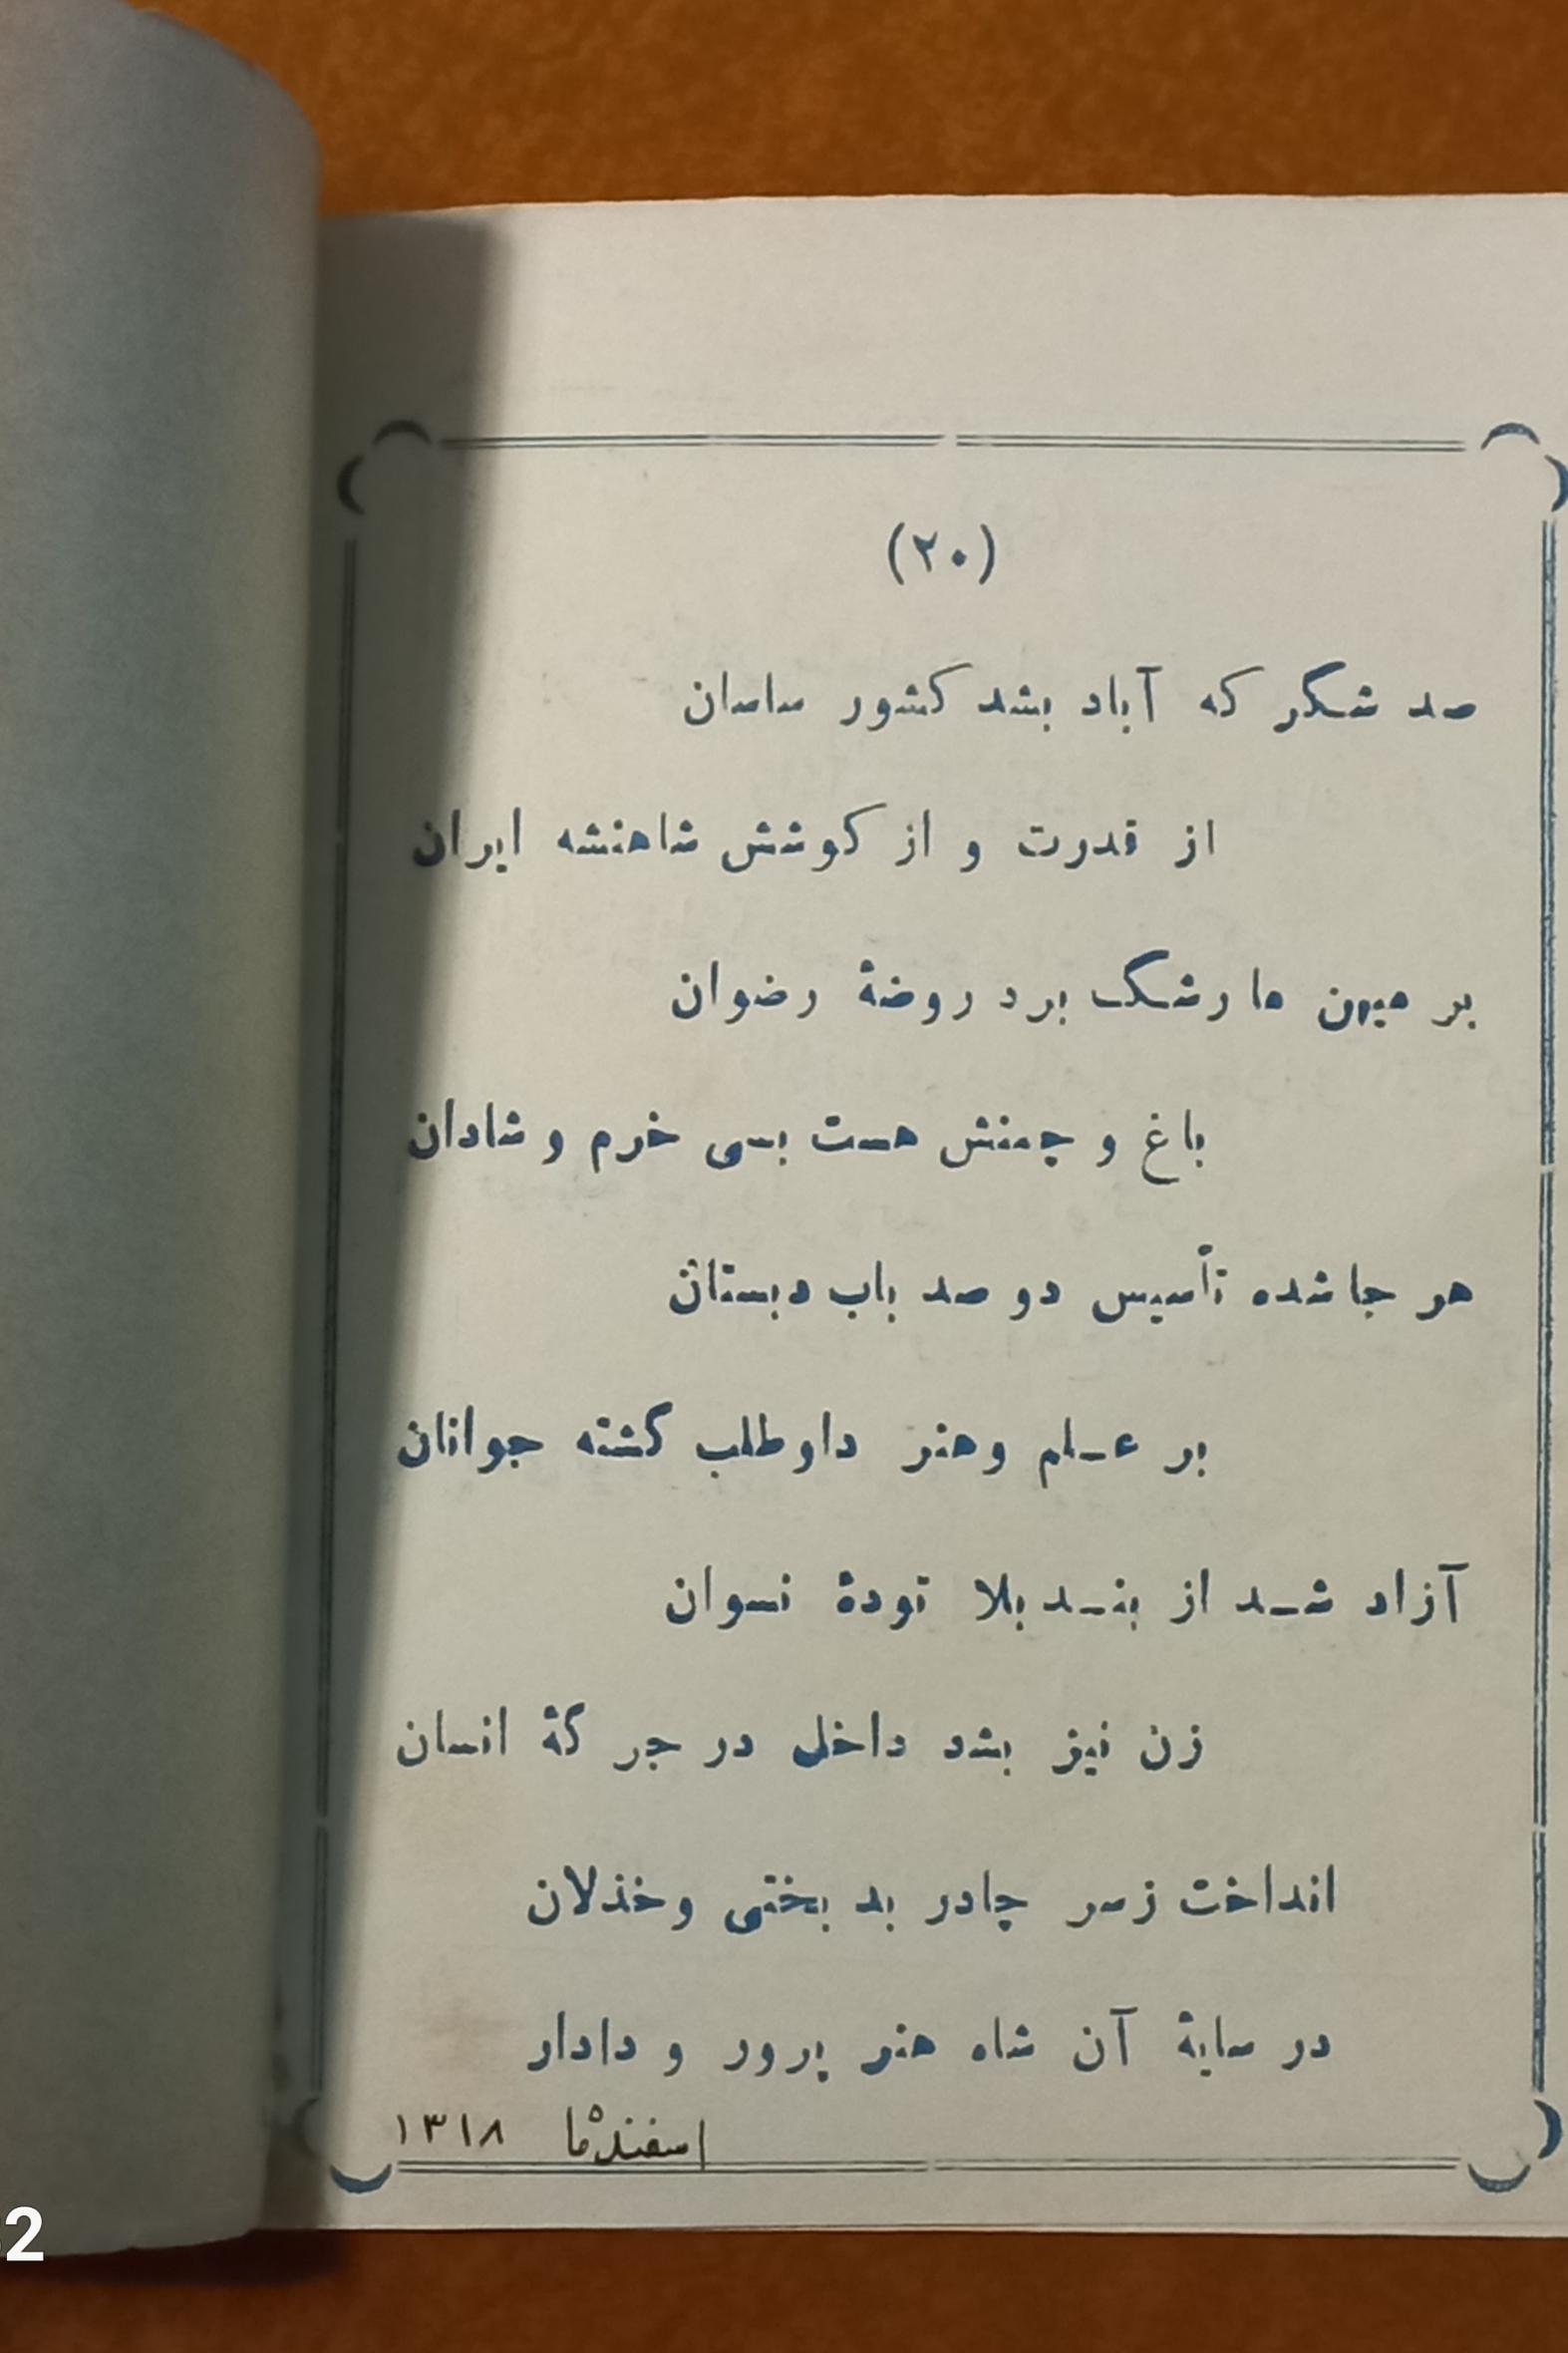 (۲۰)
صد شگر که آباد بشد کشور ساسان
از قدرت و از کوشش شاهنشه ایران
بر میهن ما رشک برد روضهٔ رضوان
باغ و چمنش هست بسی خرم و شادان
هر جا شده تأسیس دو صد باب دبستان
بر علم وهنر داوطلب گشته جوانان
آزاد شد از بند بلا تودهٔ نسوان
زن نیز بشد داخل در جر گهٔ انسان
انداخت زسر چادر بد بختی وخذلان
در سایهٔ آن شاه هنر پرور و دادار
اسفندماه ۱۳۱۸